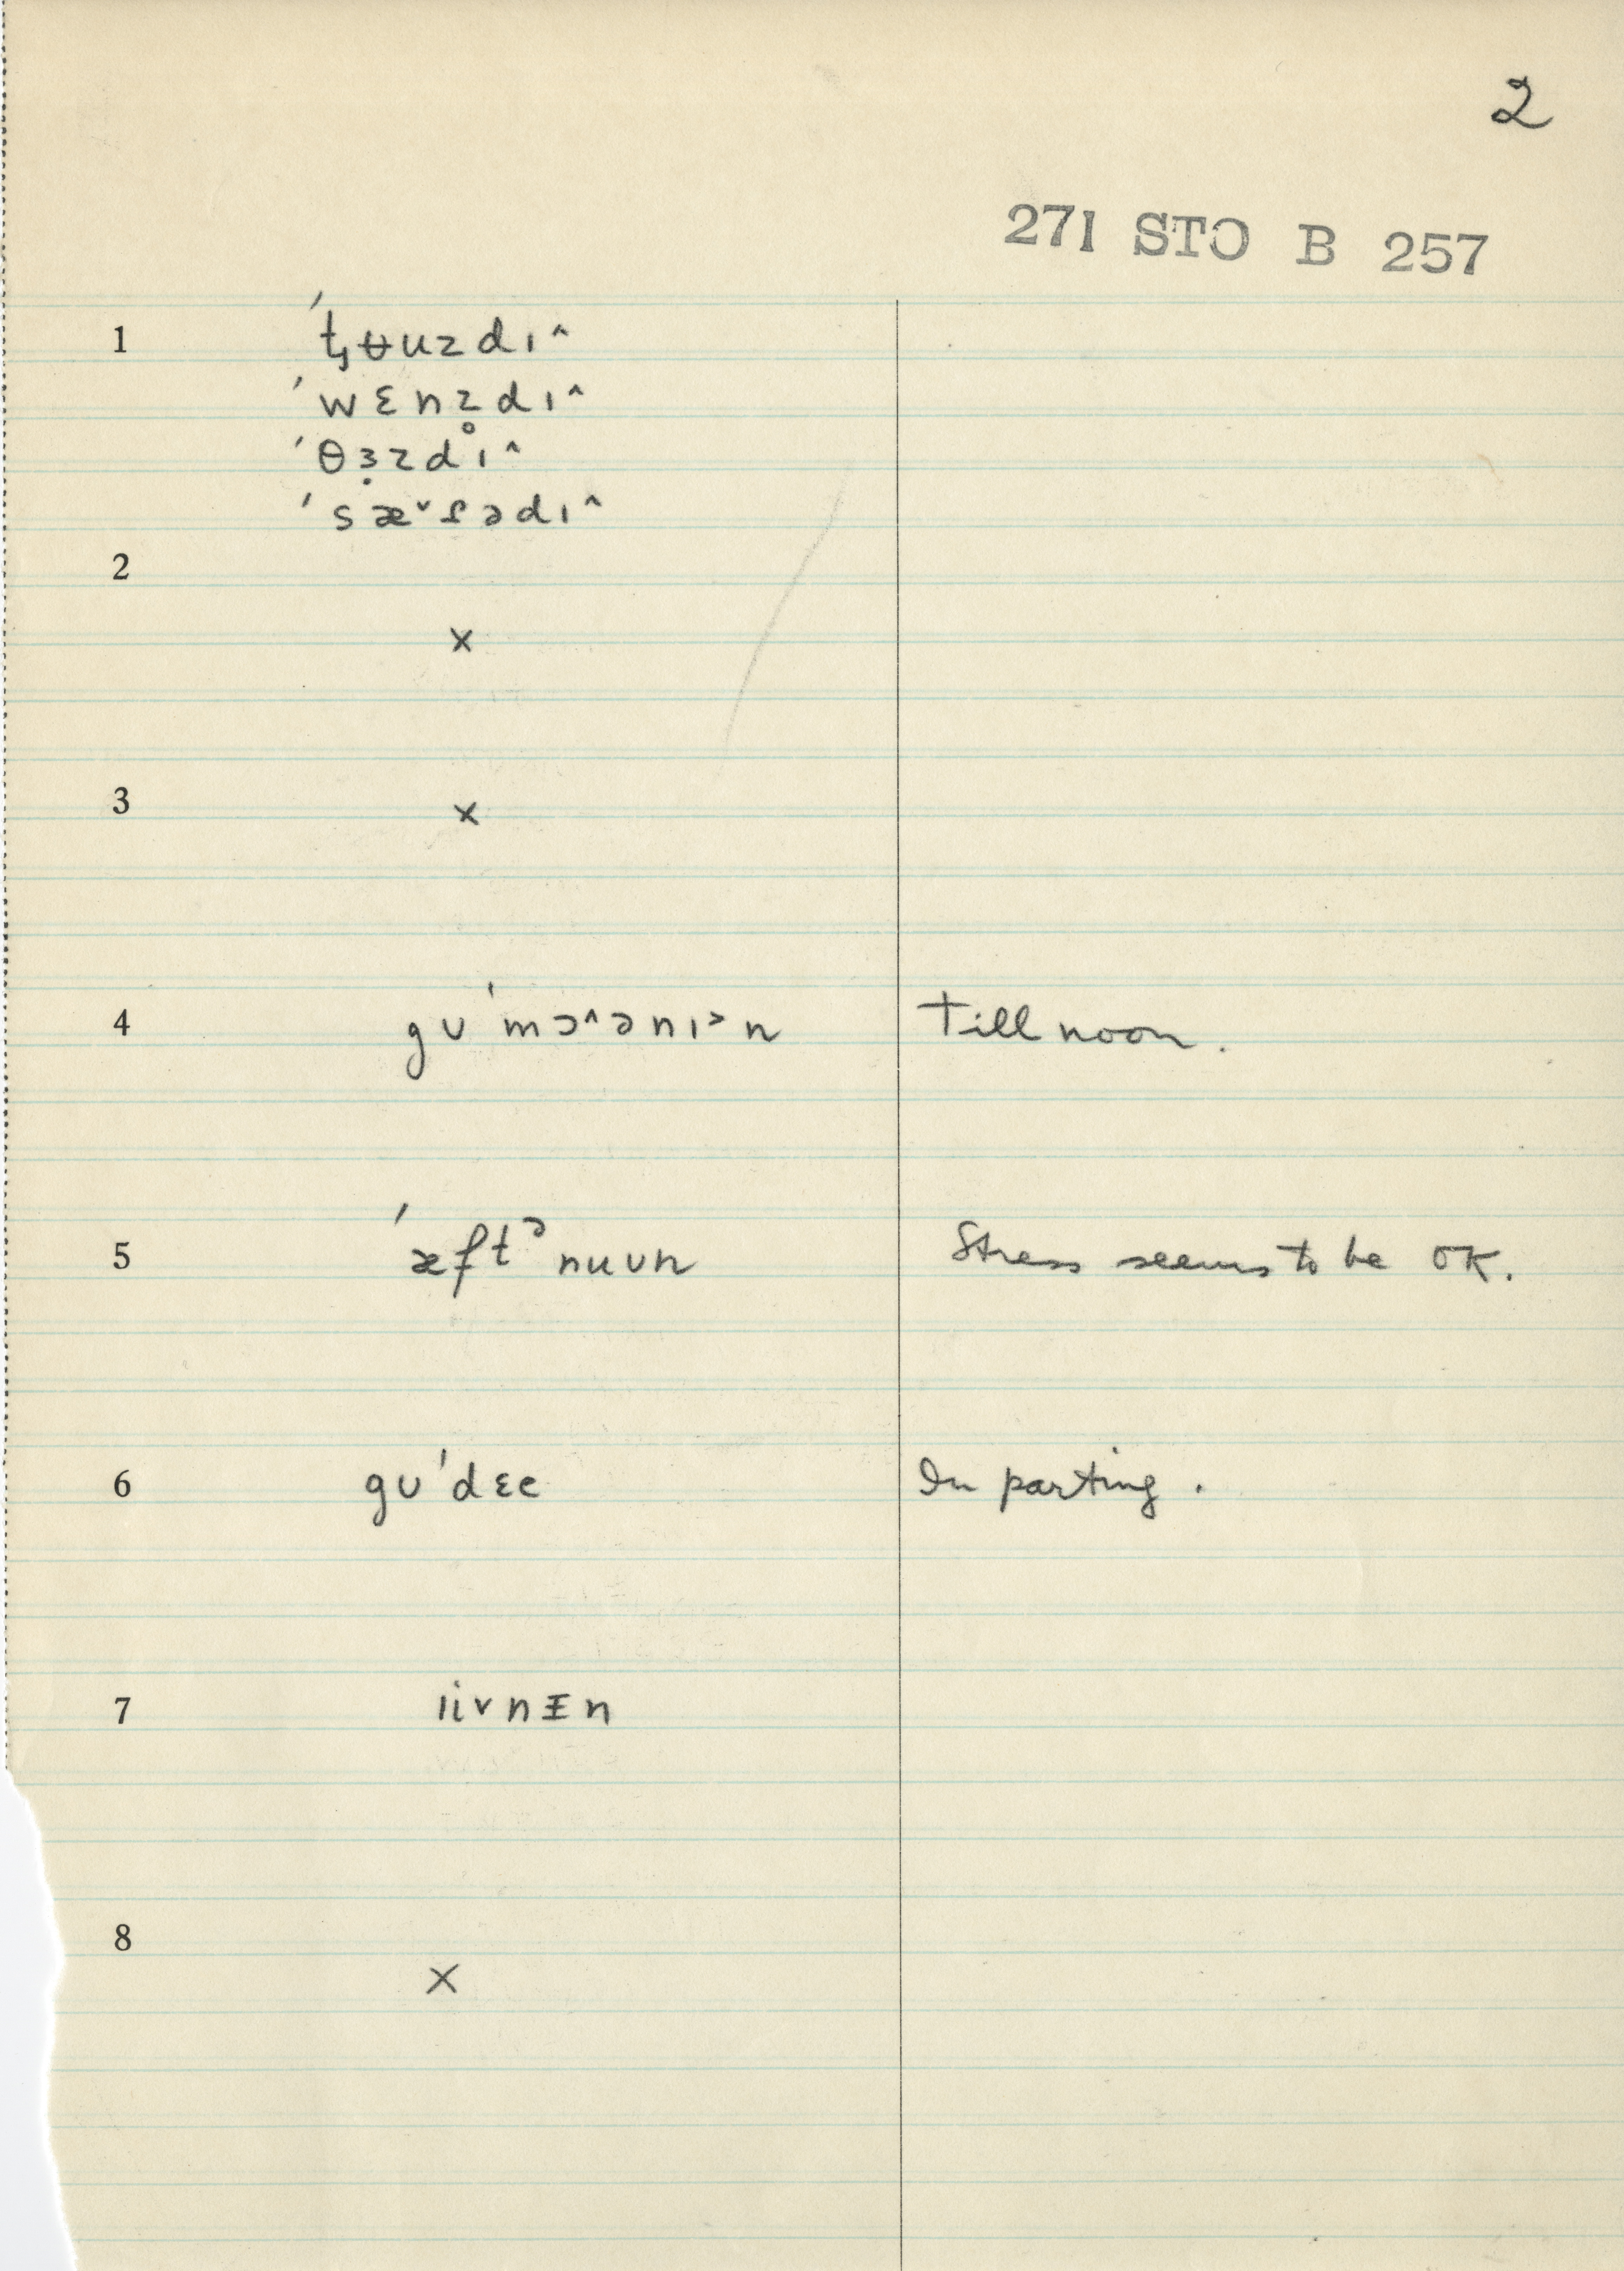 2
271 STO B 257
1 ˈt̡ʉuzdɪ^
ˈwɛnz̥dɪ^
ˈθɜ̣zdɪ^
ˈsæˇɾədɪ^
2
×
3
×
4 gʊˈmɔ^ənɪ˃n Till noon.
5 ˈæftᵊnuʊn Stress seems to be OK.
6 gʊˈdɛe In parting.
7 ɪivnᵻn
8
×